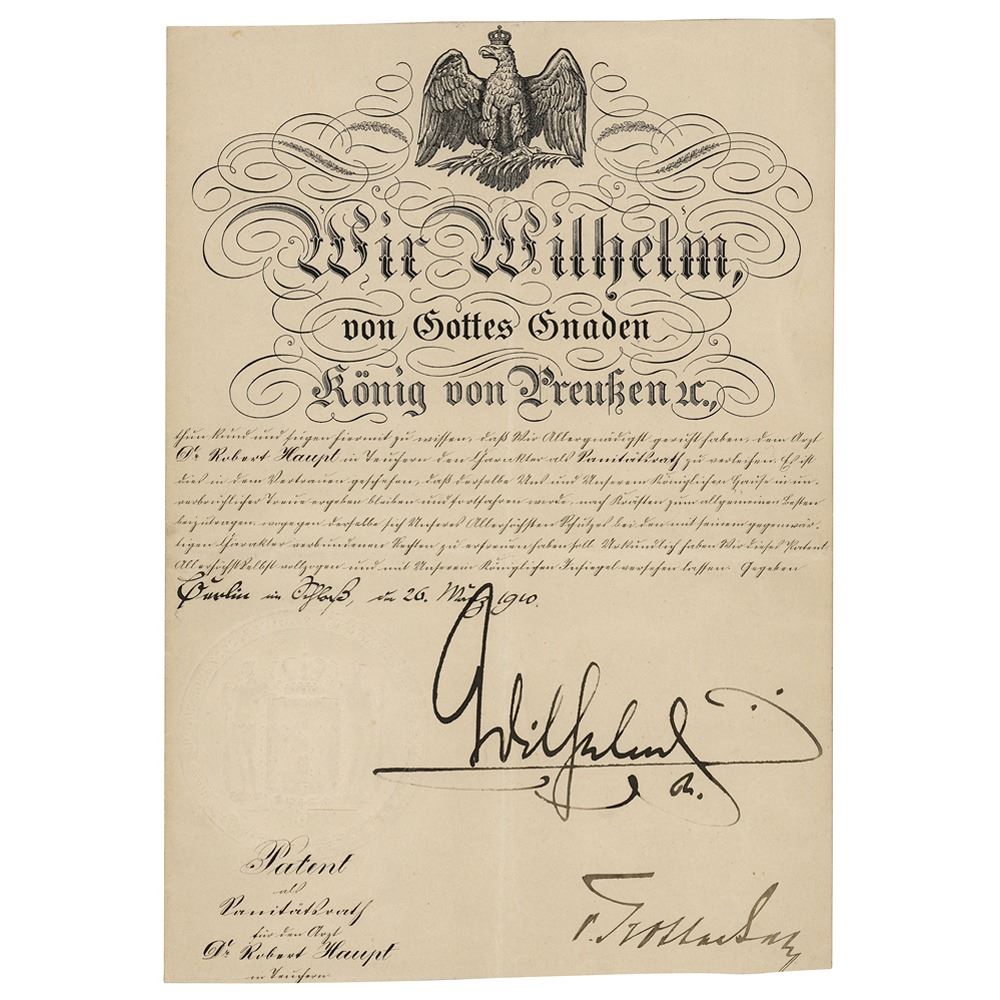 Wir Wilhelm,
von Gottes Gnaden
König von Preußen ꝛc.,
thun kund und fügen hiermit zu wissen, daß Wir Allergnädigst geruht haben, dem Arzt
Dr. Robert Haupt in Teuchern den Charakter als Sanitätsrath zu verleihen. Es ist
dies in dem Vertrauen geschehen, daß derselbe Uns und Unserem Königlichen Hause in un-
verbrüchlicher Treue ergeben bleiben und fortfahren werde, nach Kräften zum allgemeinen Besten
beizutragen, wogegen derselbe sich Unseres Allerhöchsten Schutzes bei den mit seinem gegenwär-
tigen Charakter verbundenen Rechten zu erfreuen haben soll. Urkundlich haben Wir dieses Patent
Allerhöchstselbst vollzogen und mit Unserem Königlichen Insiegel versehen lassen. Gegeben
Berlin im Schloß, den 26. März 1910.
Wilhelm
R.
Patent
als
Sanitätsrath
für den Arzt
Dr. Robert Haupt
in Teuchern